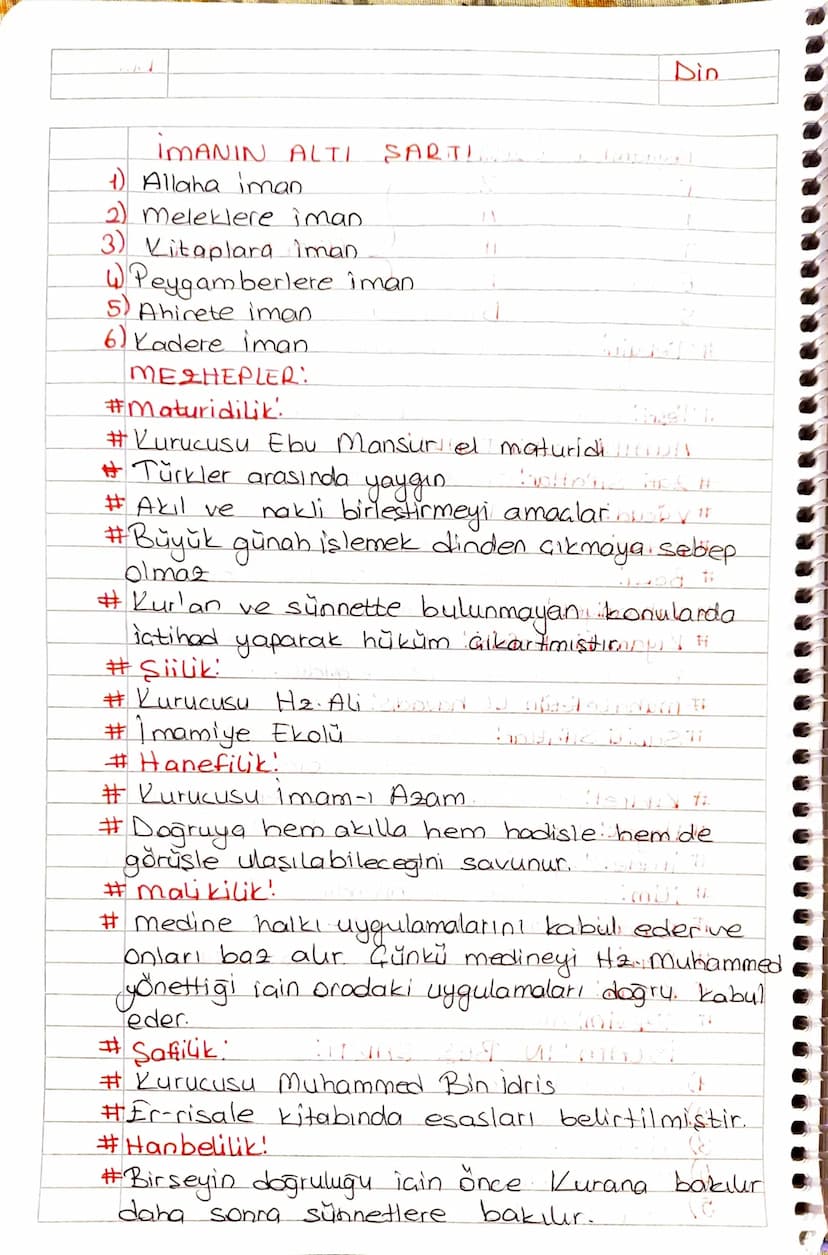 Din
İMANIN ALTI ŞARTI
1) Allaha iman
2) Meleklere iman
3) Kitaplara iman
4) Peygamberlere iman
5) Ahirete iman
6) Kadere iman
MEZHEPLER:
#Maturidilik:
# Kurucusu Ebu Mansur el maturidi
# Türkler arasında yaygın
# Akıl ve nakli birleştirmeyi amaçlar
#Büyük günah işlemek dinden çıkmaya sebep
olmaz
# Kur'an ve sünnette bulunmayan konularda
içtihad yaparak hüküm çıkartmıştır
# Şiilik:
# Kurucusu Hz. Ali
# İmamiye Ekolü
# Hanefilik:
# Kurucusu İmam-ı Azam
# Doğruya hem akılla hem hadisle hem de
görüşle ulaşılabileceğini savunur.
# Malikilik:
# Medine halkı uygulamalarını kabul eder ve
onları baz alır. Çünkü medineyi Hz. Muhammed
yönettiği için oradaki uygulamaları doğru kabul
eder.
# Şafiilik:
# Kurucusu Muhammed Bin idris
#Er-risale kitabında esasları belirtilmiştir.
#Hanbelilik:
#Birşeyin doğruluğu için önce Kurana bakılır
daha sonra sünnetlere bakılır.